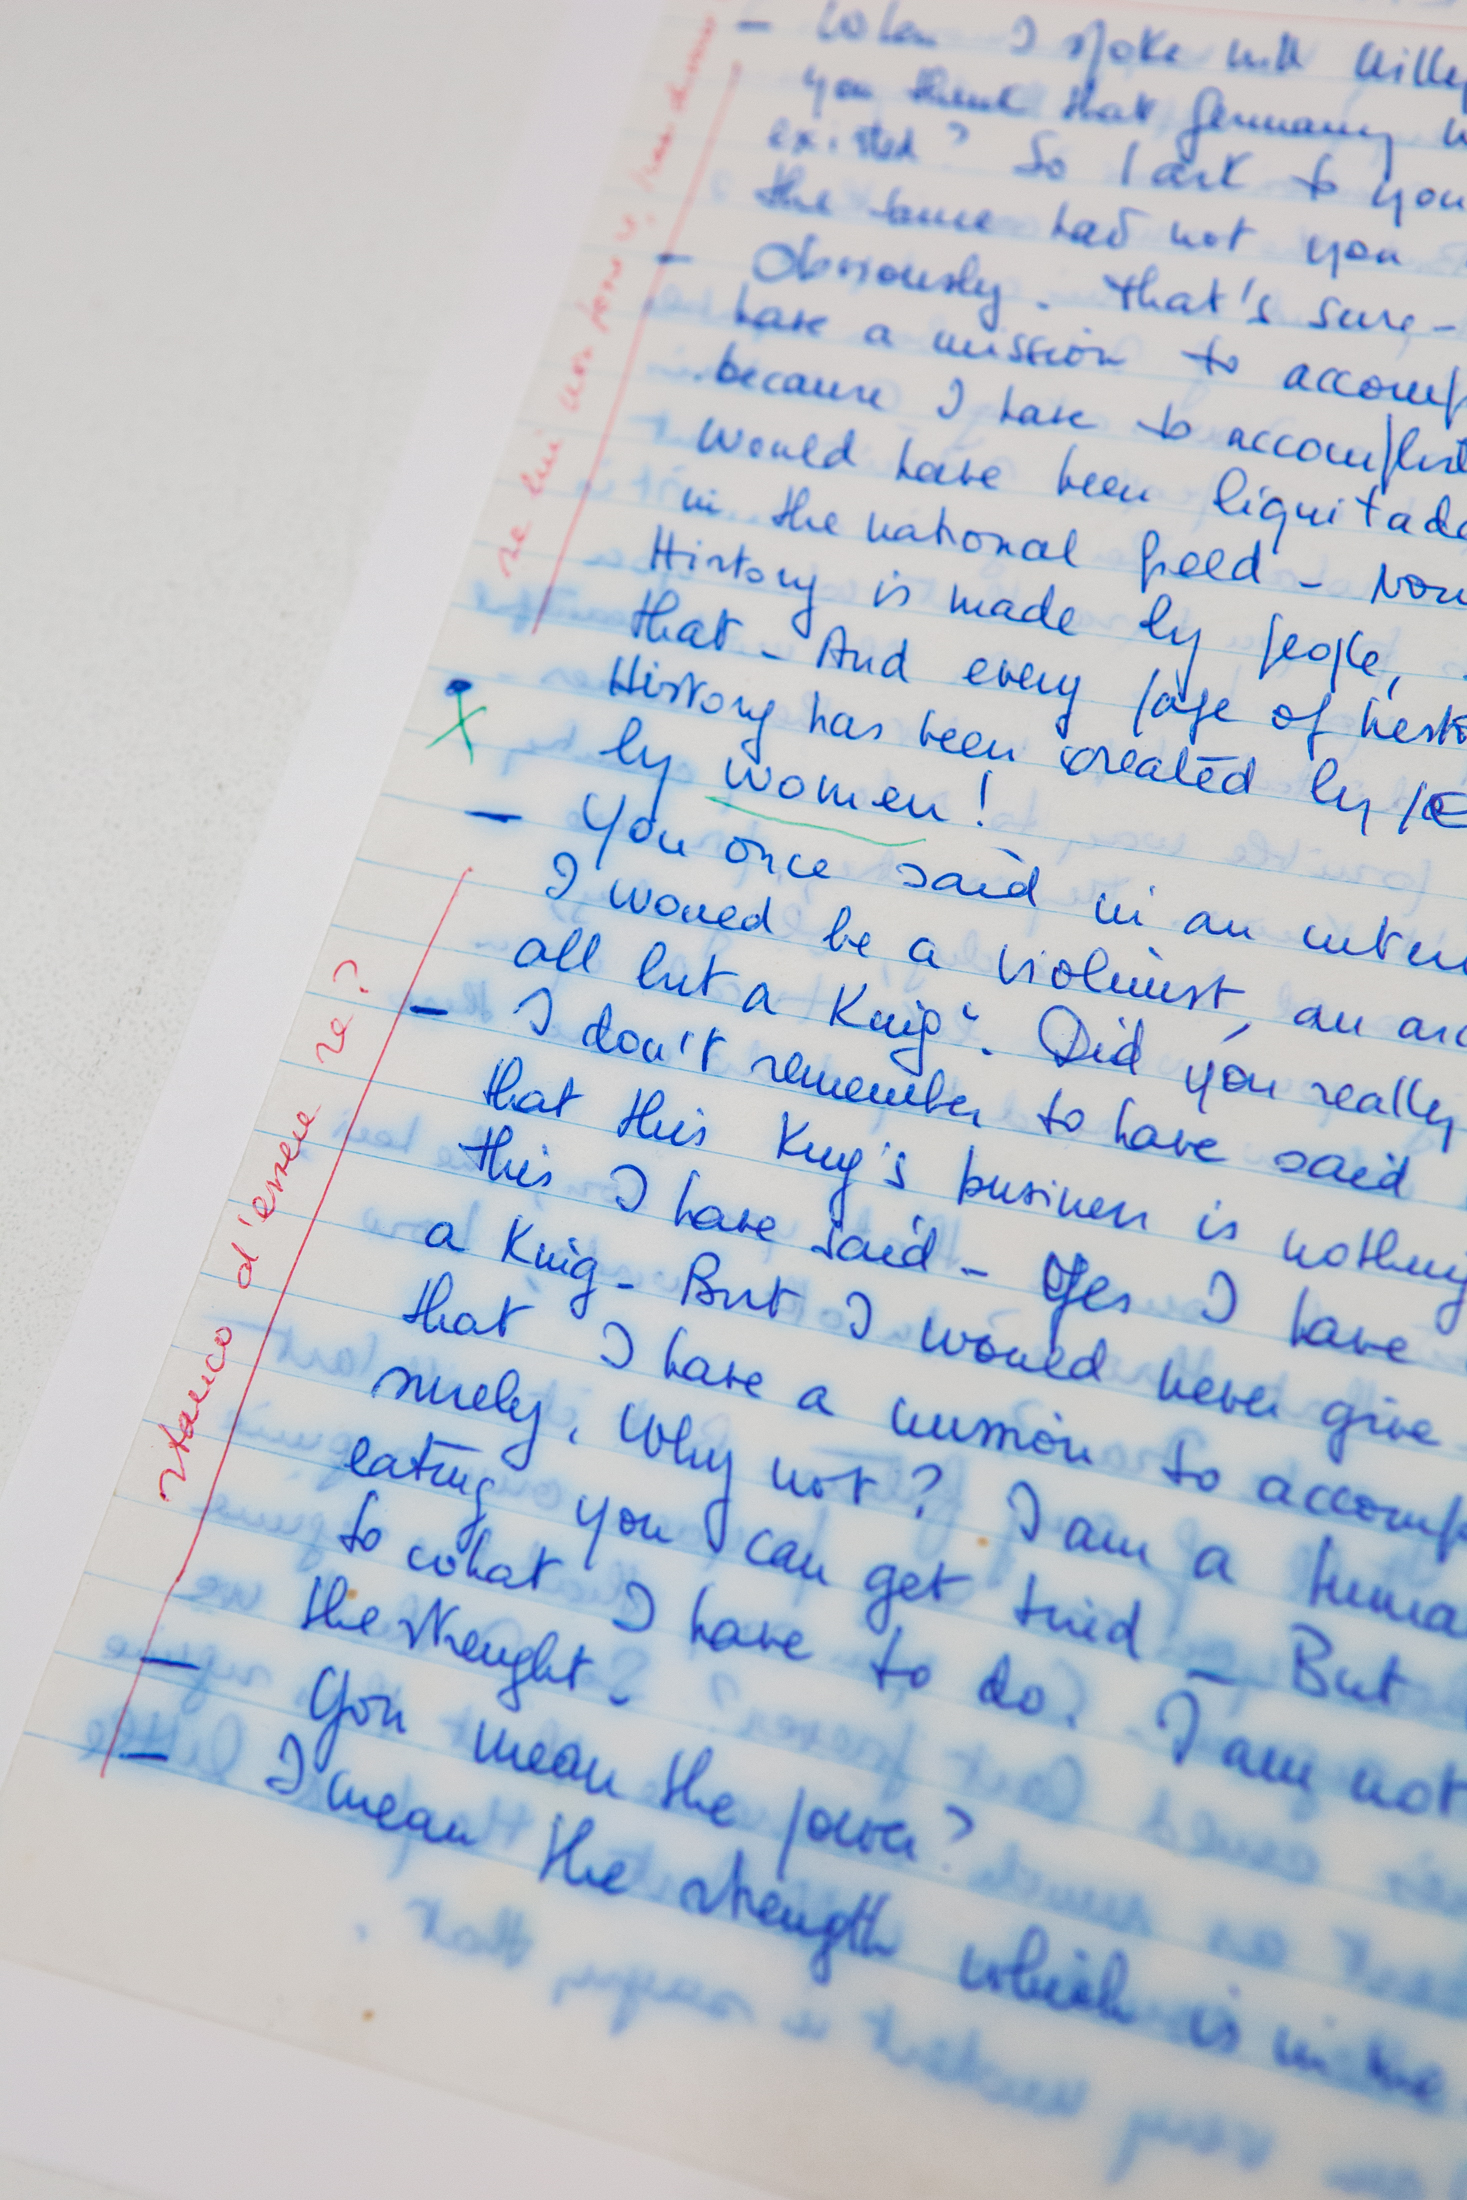 - When I spoke with Willy
you think that Germany
existed? So I ask to you
the same had not you
- Obviously. That's sure -
have a mission to accomp
because I have to accomplish
would have been liquitade
in the national field - Now
History is made by people,
that - And every page of histo
History has been created by pe
by women!
- You once said in an interv
I would be a violinist, an arc
all but a King". Did you really
- I don't remember to have said
that this King's business is nothing
this I have said - Yes I have
a King - But I would never give
that I have a mission to accomp
surely. Why not? I am a huma
eating you can get tired - But
to what I have to do. I am not
the strenght?
- You mean the power?
- I mean the strength which is in the
X
se lui non fosse
stanco d'essere re?